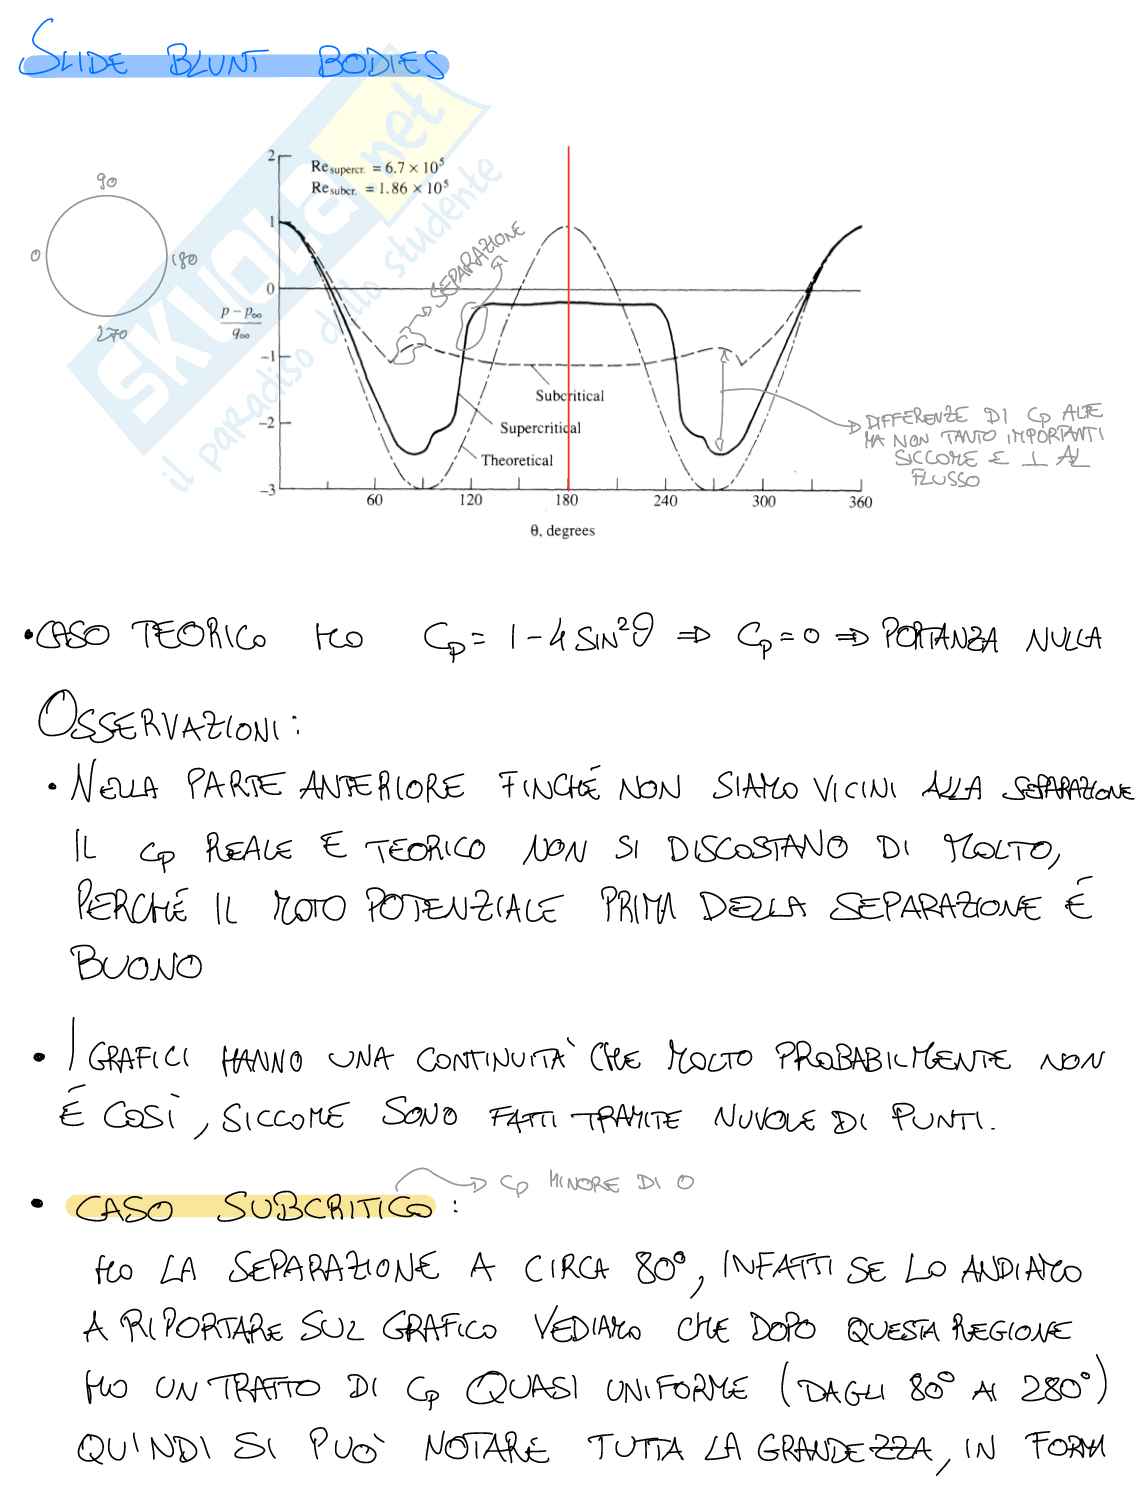 SLIDE BLUNT BODIES
90
0
180
270
Re supercr. = 6.7 × 10⁵
Re subcr. = 1.86 × 10⁵
2
1
0
-1
-2
-3
p − p∞
q∞
SEPARAZIONE
Subcritical
Supercritical
Theoretical
60 120 180 240 300 360
θ, degrees
DIFFERENZE DI Cp ALTE
MA NON TANTO IMPORTANTI
SICCOME E ⊥ AL
FLUSSO
SKUOLA.net
il paradiso dello studente
• CASO TEORICO HO Cp = 1 - 4 SIN²θ ⇒ Cp = 0 ⇒ PORTANZA NULLA
OSSERVAZIONI:
• NELLA PARTE ANTERIORE FINCHÉ NON SIAMO VICINI ALLA SEPARAZIONE
IL Cp REALE E TEORICO NON SI DISCOSTANO DI MOLTO,
PERCHÉ IL MOTO POTENZIALE PRIMA DELLA SEPARAZIONE É
BUONO
• I GRAFICI HANNO UNA CONTINUITÀ CHE MOLTO PROBABILMENTE NON
É COSÌ, SICCOME SONO FATTI TRAMITE NUVOLE DI PUNTI.
→ Cp MINORE DI 0
• CASO SUBCRITICO:
HO LA SEPARAZIONE A CIRCA 80°, INFATTI SE LO ANDIAMO
A RIPORTARE SUL GRAFICO VEDIAMO CHE DOPO QUESTA REGIONE
HO UN TRATTO DI Cp QUASI UNIFORME (DAGLI 80° AI 280°)
QUINDI SI PUÒ NOTARE TUTTA LA GRANDEZZA, IN FORMA